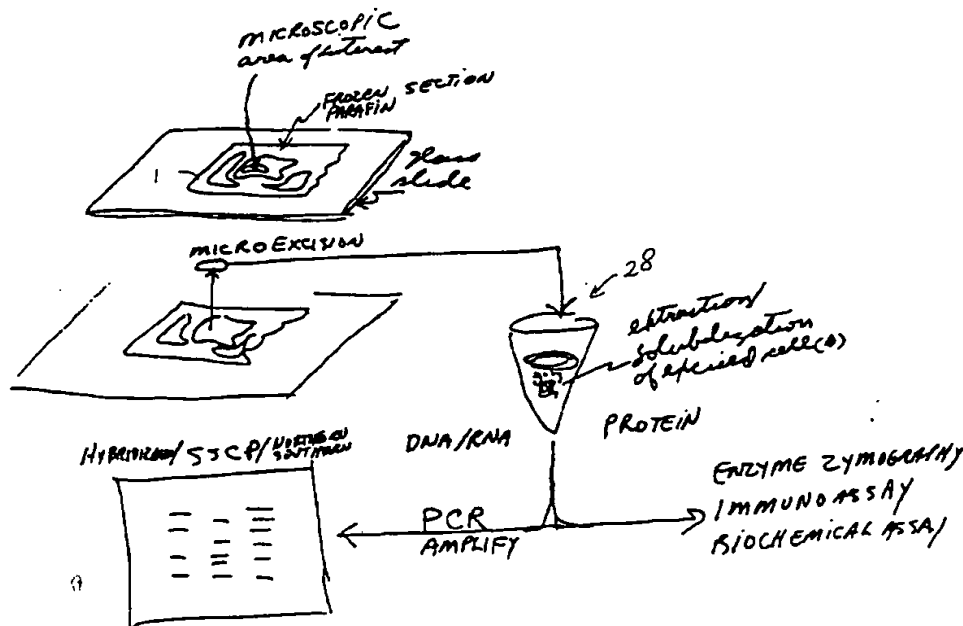 MICROSCOPIC
area of interest
FROZEN SECTION
PARAFIN
1
glass
slide
MICRO EXCISION
28
extraction/
solubilization
of excised cell(s)
DNA/RNA
PROTEIN
SSCP/NORTHERN
SOUTHERN
PCR
AMPLIFY
ENZYME ZYMOGRAPHY
IMMUNOASSAY
BIOCHEMICAL ASSAY